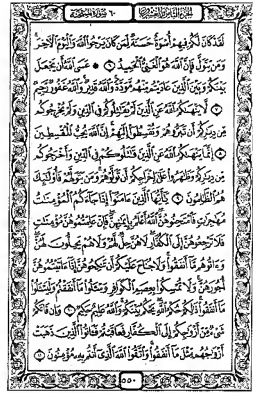 الجزء الثامن والعشرون ٦٠ سورة الممتحنة
لَقَدْ كَانَ لَكُمْ فِيهِمْ أُسْوَةٌ حَسَنَةٌ لِّمَن كَانَ يَرْجُوا۟ ٱللَّهَ وَٱلْيَوْمَ ٱلْـَٔاخِرَ
وَمَن يَتَوَلَّ فَإِنَّ ٱللَّهَ هُوَ ٱلْغَنِىُّ ٱلْحَمِيدُ ٦ عَسَى ٱللَّهُ أَن يَجْعَلَ
بَيْنَكُمْ وَبَيْنَ ٱلَّذِينَ عَادَيْتُم مِّنْهُم مَّوَدَّةً وَٱللَّهُ قَدِيرٌ وَٱللَّهُ غَفُورٌ رَّحِيمٌ
٧ لَّا يَنْهَىٰكُمُ ٱللَّهُ عَنِ ٱلَّذِينَ لَمْ يُقَـٰتِلُوكُمْ فِى ٱلدِّينِ وَلَمْ يُخْرِجُوكُم
مِّن دِيَـٰرِكُمْ أَن تَبَرُّوهُمْ وَتُقْسِطُوٓا۟ إِلَيْهِمْ إِنَّ ٱللَّهَ يُحِبُّ ٱلْمُقْسِطِينَ
٨ إِنَّمَا يَنْهَىٰكُمُ ٱللَّهُ عَنِ ٱلَّذِينَ قَـٰتَلُوكُمْ فِى ٱلدِّينِ وَأَخْرَجُوكُم
مِّن دِيَـٰرِكُمْ وَظَـٰهَرُوا۟ عَلَىٰٓ إِخْرَاجِكُمْ أَن تَوَلَّوْهُمْ وَمَن يَتَوَلَّهُمْ فَأُو۟لَـٰٓئِكَ
هُمُ ٱلظَّـٰلِمُونَ ٩ يَـٰٓأَيُّهَا ٱلَّذِينَ ءَامَنُوٓا۟ إِذَا جَآءَكُمُ ٱلْمُؤْمِنَـٰتُ
مُهَـٰجِرَٰتٍ فَٱمْتَحِنُوهُنَّ ٱللَّهُ أَعْلَمُ بِإِيمَـٰنِهِنَّ فَإِنْ عَلِمْتُمُوهُنَّ مُؤْمِنَـٰتٍ
فَلَا تَرْجِعُوهُنَّ إِلَى ٱلْكُفَّارِ لَا هُنَّ حِلٌّ لَّهُمْ وَلَا هُمْ يَحِلُّونَ لَهُنَّ
وَءَاتُوهُم مَّآ أَنفَقُوا۟ وَلَا جُنَاحَ عَلَيْكُمْ أَن تَنكِحُوهُنَّ إِذَآ ءَاتَيْتُمُوهُنَّ
أُجُورَهُنَّ وَلَا تُمْسِكُوا۟ بِعِصَمِ ٱلْكَوَافِرِ وَسْـَٔلُوا۟ مَآ أَنفَقْتُمْ وَلْيَسْـَٔلُوا۟
مَآ أَنفَقُوا۟ ذَٰلِكُمْ حُكْمُ ٱللَّهِ يَحْكُمُ بَيْنَكُمْ وَٱللَّهُ عَلِيمٌ حَكِيمٌ ١٠ وَإِن فَاتَكُمْ
شَىْءٌ مِّنْ أَزْوَٰجِكُمْ إِلَى ٱلْكُفَّارِ فَعَاقَبْتُمْ فَـَٔاتُوا۟ ٱلَّذِينَ ذَهَبَتْ
أَزْوَٰجُهُم مِّثْلَ مَآ أَنفَقُوا۟ وَٱتَّقُوا۟ ٱللَّهَ ٱلَّذِىٓ أَنتُم بِهِۦ مُؤْمِنُونَ ١١
٥٥٠